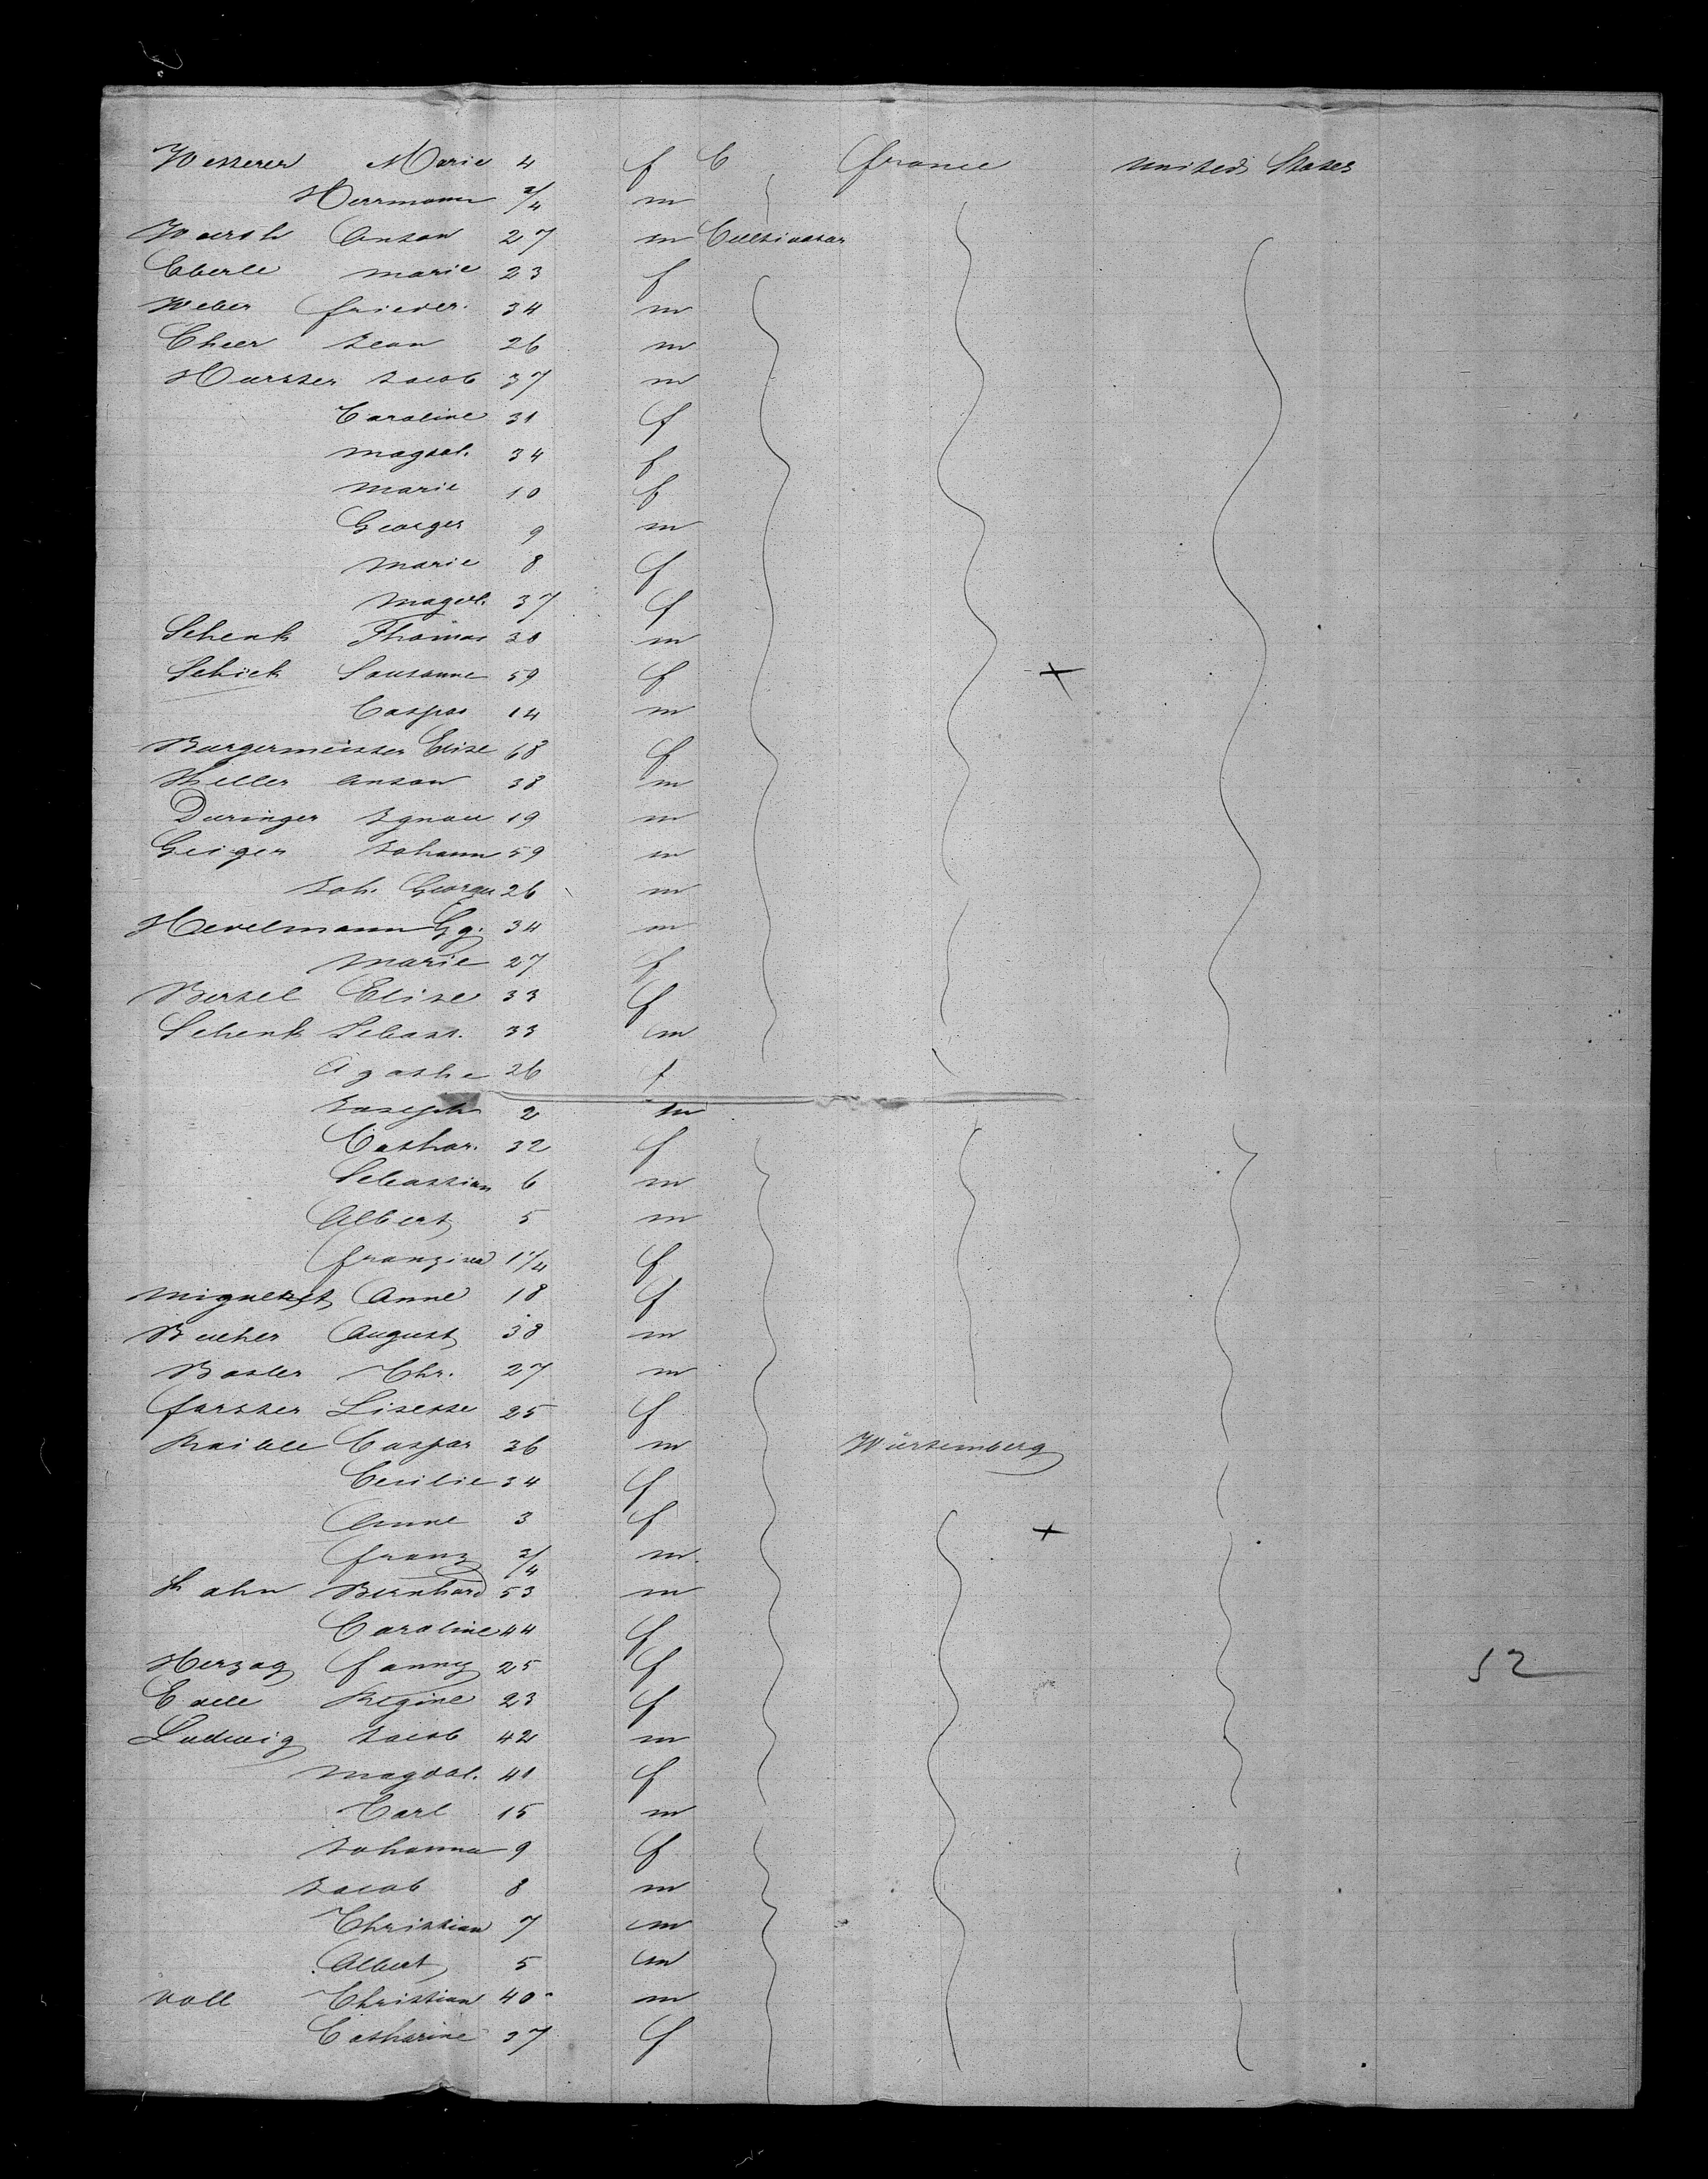 Wesserer Marie 4 f C france united States
Herrmann 3/4 m
Woersh Anton 27 m Cultivator
Eberle marie 23 f
Weber frieder. 34 m
Cheer Jean 26 m
Hurster Jacob 37 m
Caroline 31 f
magdal. 34 f
marie 10 f
Georges 9 m
marie 8 f
magdl. 37 f
Schenk Thomas 30 m
Schick Sousanne 59 f
Caspar 14 m
Burgermeister Elise 68 f
Keller anton 38 m
Duringer Ignau 19 m
Geiger Johann 59 m
Joh. George 26 m
Hevelmann Gg. 34 m
marie 27 f
Bertel Elise 33 f
Schenk Sebast. 33 m
Agathe 26 f
Joseph 2 m
Cathar. 32 f
Sebastian 6 m
Albert 5 m
franzisca 1 1/4 f
Anne 18 f
Bucher August 38 m
Basler Chr. 27 m
forster Lisette 25 f
Raible Caspar 36 m Würtemberg
Cecilie 34 f
Anne 3 f
franz 3/4 m
Kahn Bernhard 53 m
Caroline 44 f
Herzog fanny 25 f 52
Edele Regine 23 f
Ludwig Jacob 42 m
magdal. 41 f
Carl 15 m
Johanna 9 f
Jacob 8 m
Christian 7 m
Albert 5 m
voll Christian 40 m
Catharine 37 f